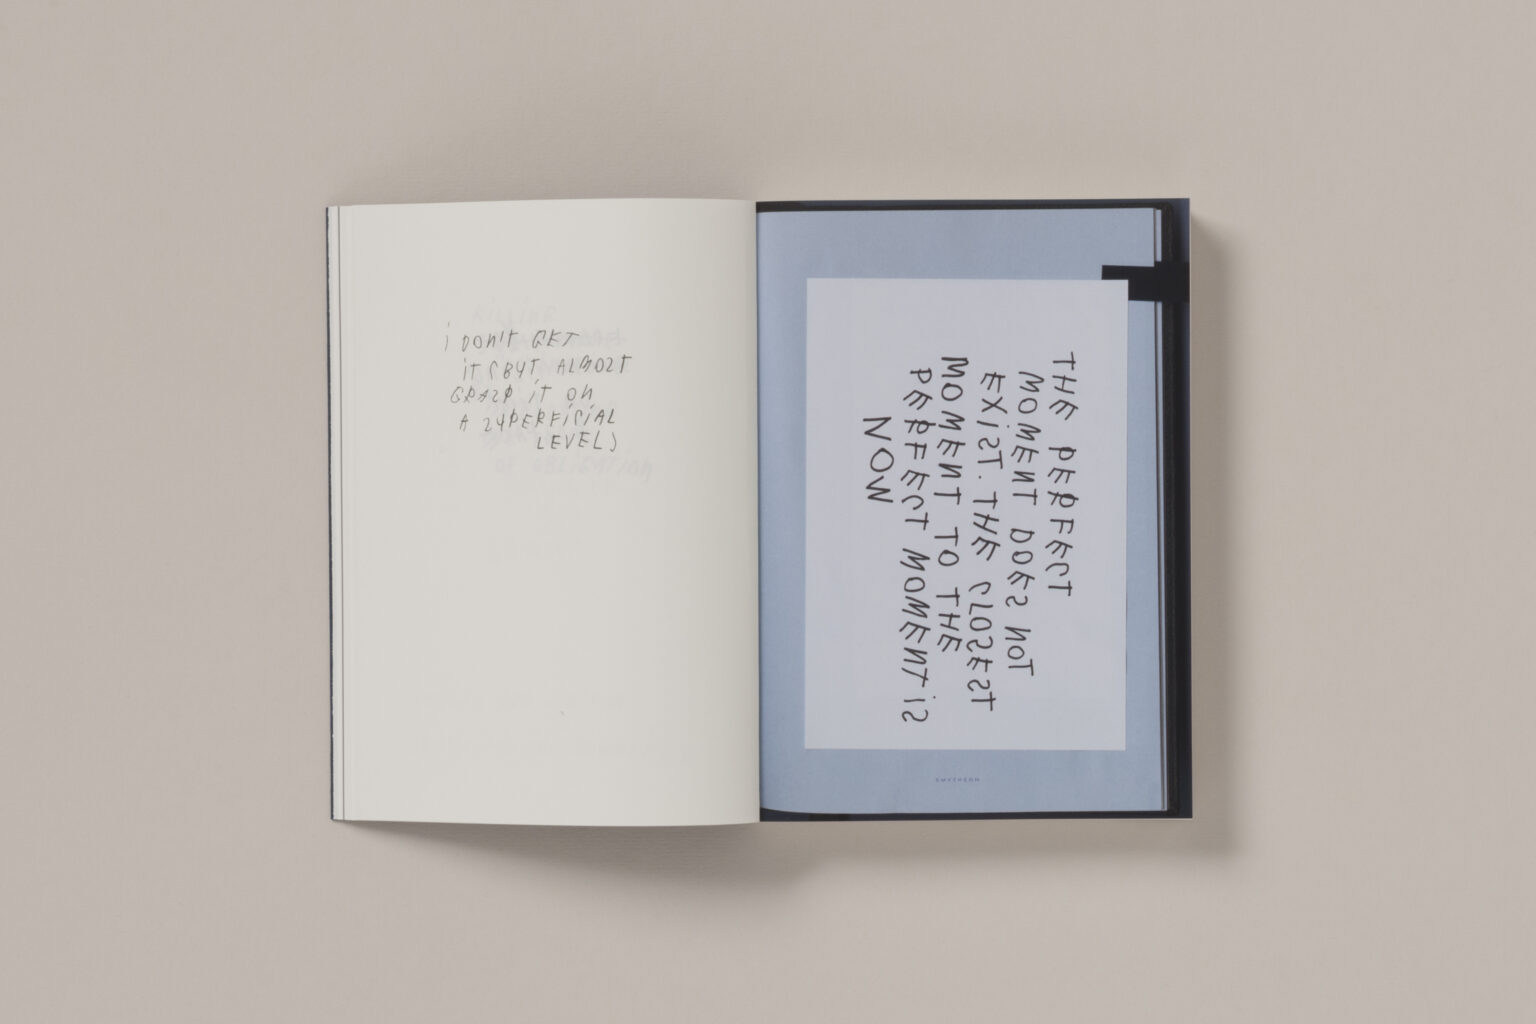 i DON'T GET
iT (BUT ALMOST
GRASP iT ON
A SUPERFICIAL
LEVEL)
THE PERFECT
MOMENT DOES NOT
EXIST. THE CLOSEST
MOMENT TO THE
PERFECT MOMENT iS
NOW